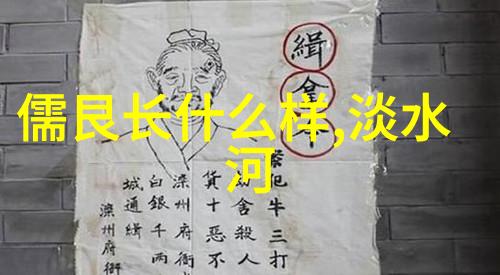 儒艮长什么样,淡水
河
緝拿
犯牛三打
舍殺人
貨十惡不
滦州府衙
白銀千两
城通緝
滦州府衙